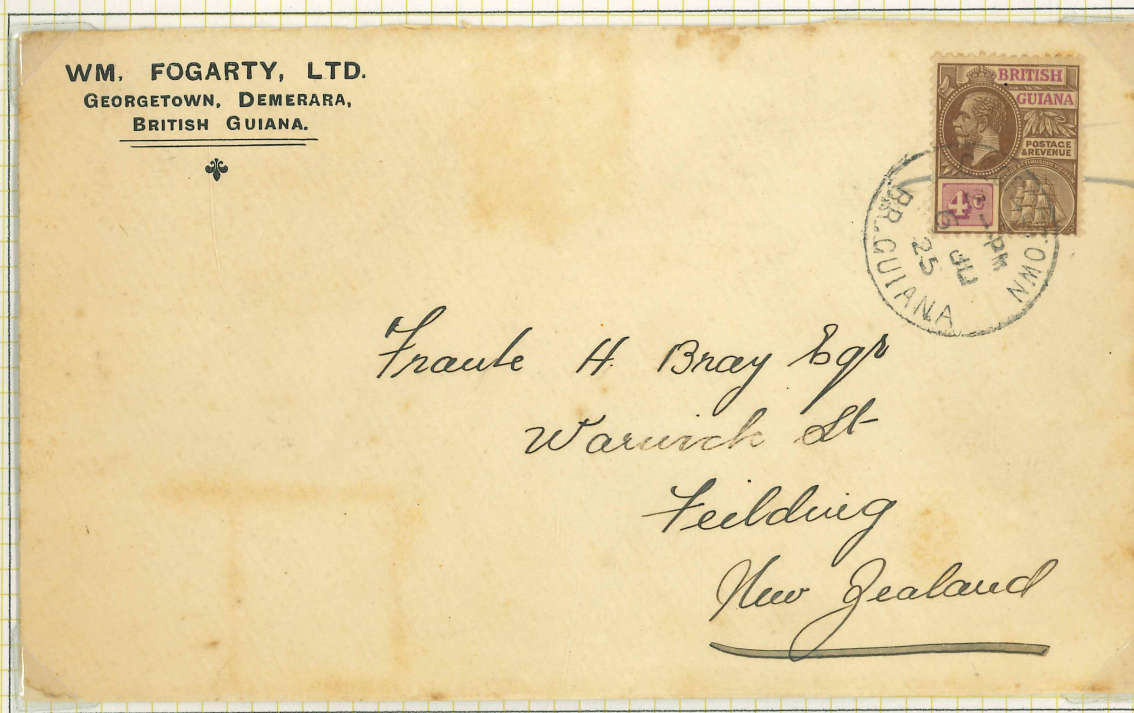 WM. FOGARTY, LTD.
GEORGETOWN, DEMERARA,
BRITISH GUIANA.
BRITISH
GUIANA
POSTAGE
& REVENUE
4c
TOWN
PM
JU
25
BR. GUIANA
Frank H. Bray Esqr
Warwick St
Feilding
New Zealand